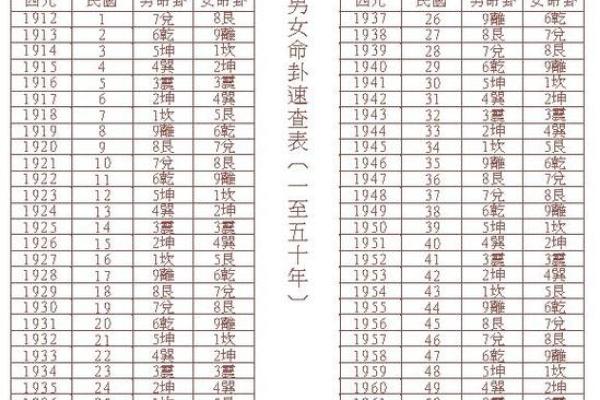 西元 民國 男命卦 女命卦
1912 1 7兌 8艮
1913 2 6乾 9離
1914 3 5坤 1坎
1915 4 4巽 2坤
1916 5 3震 3震
1917 6 2坤 4巽
1918 7 1坎 5艮
1919 8 9離 6乾
1920 9 8艮 7兌
1921 10 7兌 8艮
1922 11 6乾 9離
1923 12 5坤 1坎
1924 13 4巽 2坤
1925 14 3震 3震
1926 15 2坤 4巽
1927 16 1坎 5艮
1928 17 9離 6乾
1929 18 8艮 7兌
1930 19 7兌 8艮
1931 20 6乾 9離
1932 21 5坤 1坎
1933 22 4巽 2坤
1934 23 3震 3震
1935 24 2坤 4巽
男女命卦速查表〔一至五十年〕
西元 民國 男命卦 女命卦
1937 26 9離 6乾
1938 27 8艮 7兌
1939 28 7兌 8艮
1940 29 6乾 9離
1941 30 5坤 1坎
1942 31 4巽 2坤
1943 32 3震 3震
1944 33 2坤 4巽
1945 34 1坎 5艮
1946 35 9離 6乾
1947 36 8艮 7兌
1948 37 7兌 8艮
1949 38 6乾 9離
1950 39 5坤 1坎
1951 40 4巽 2坤
1952 41 3震 3震
1953 42 2坤 4巽
1954 43 1坎 5艮
1955 44 9離 6乾
1956 45 8艮 7兌
1957 46 7兌 8艮
1958 47 6乾 9離
1959 48 5坤 1坎
1960 49 4巽 2坤